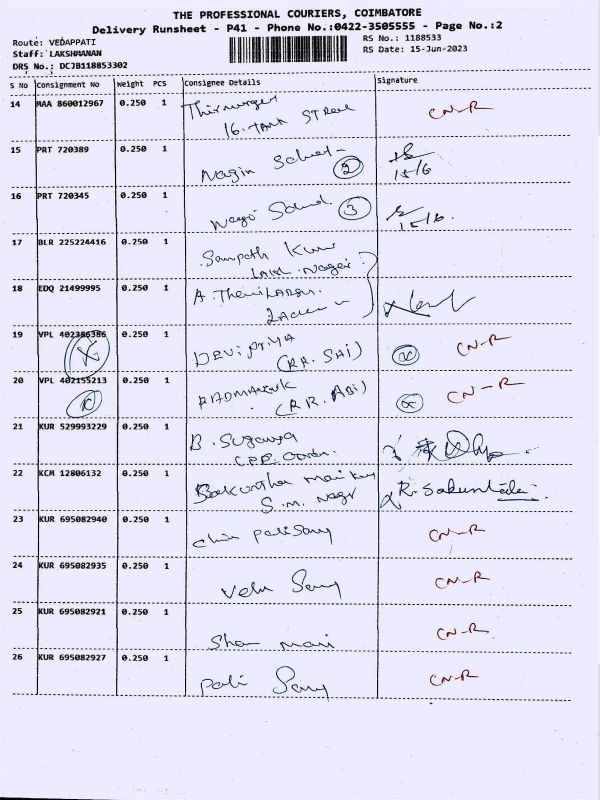 THE PROFESSIONAL COURIERS, COIMBATORE
Delivery Runsheet - P41 - Phone No.:0422-3505555 - Page No.:2
Route: VEDAPPATI
RS No.: 1188533
Staff: LAKSHMANAN
RS Date: 15-Jun-2023
DRS No.: DCJB118853302
S No Consignment No Weight PCS Consignee Details Signature
14 MAA 860012967 0.250 1 CN-R
16. TANK STREET
15 PRT 720389 0.250 1 Nagini School
2 15/6
16 PRT 720345 0.250 1
3 15/6.
17 BLR 225224416 0.250 1 Sampath Kumar
Nagar
18 EDQ 21499995 0.250 1 A.
19 VPL 402386386 0.250 1 DEVI PRIYA CN-R
(RR. SAI)
20 VPL 402155213 0.250 1 CN-R
(RR. ABI)
21 KUR 529993229 0.250 1 B. Suganya
22 KCM 12806132 0.250 1 R. Sakuntala
S. M. Nagar
23 KUR 695082940 0.250 1 CN-R
24 KUR 695082935 0.250 1 Velu Samy CN-R
25 KUR 695082921 0.250 1 CN-R
26 KUR 695082927 0.250 1 Pali Samy CN-R